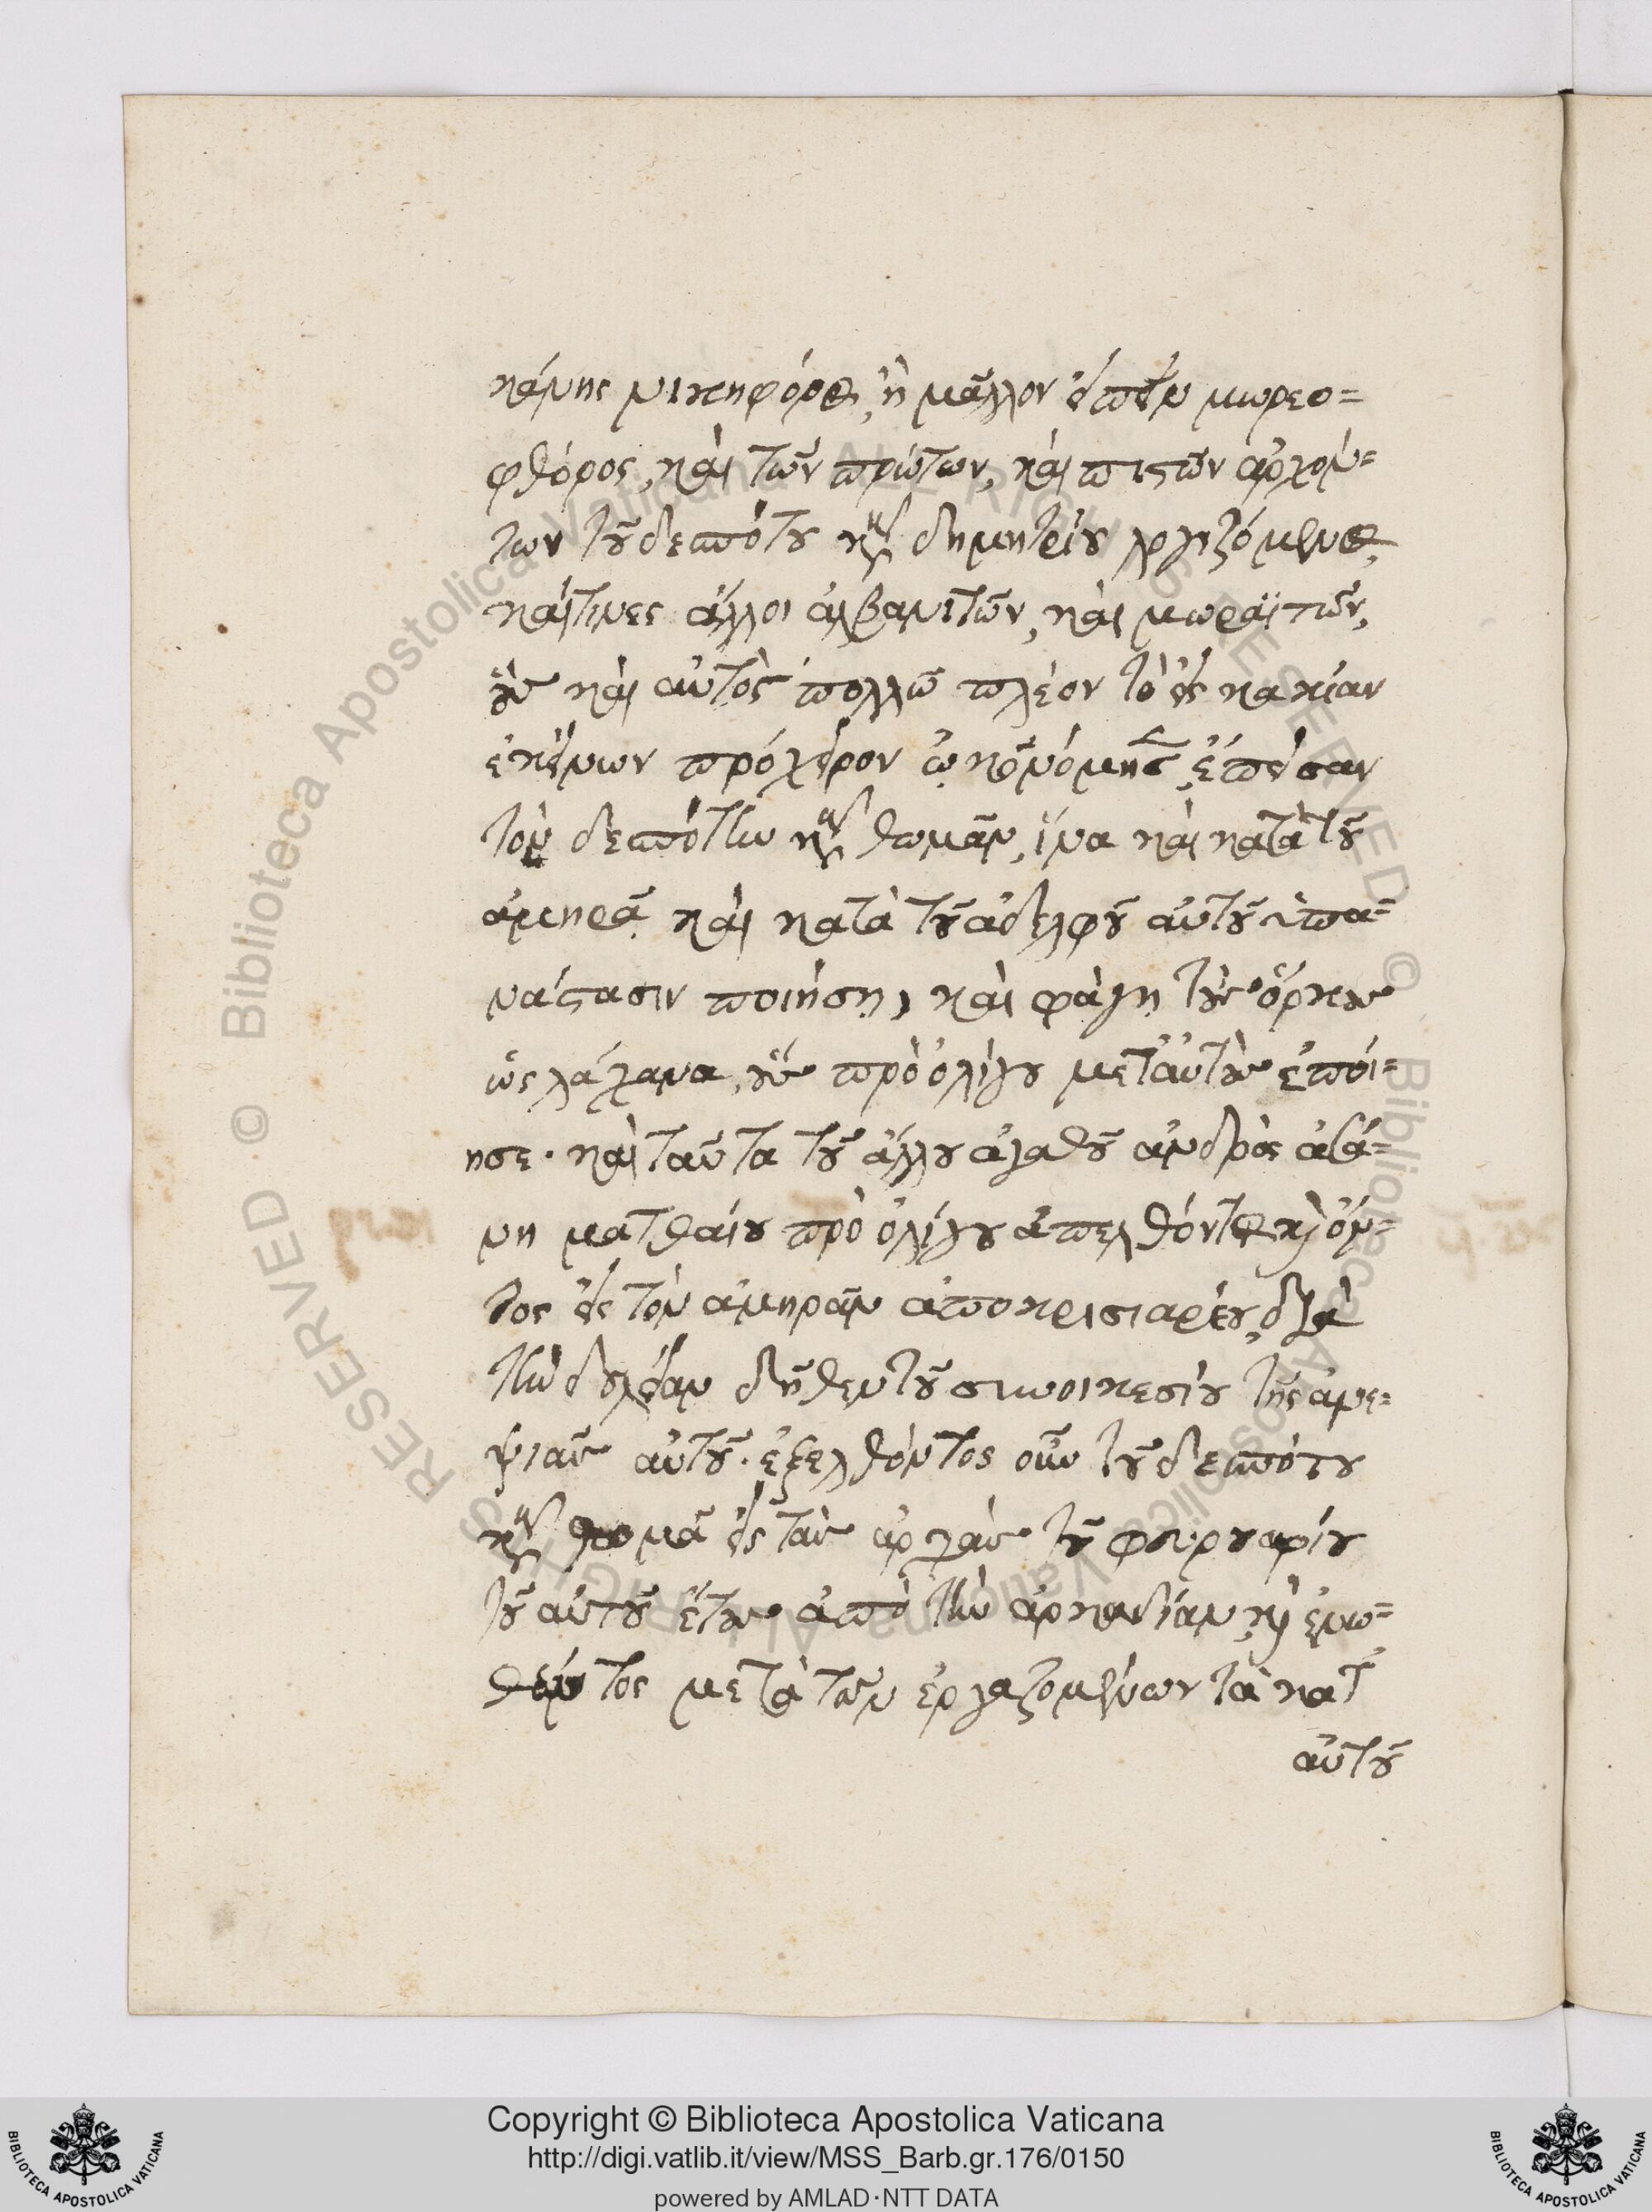 κάνης νικηφόρος, ἢ μᾶλλον εἰπεῖν μωρεο=
φθόρος, καὶ τῶν πρώτων, καὶ πιστῶν ἀρχόν=
των τοῦ δεσπότου κὺρ δημητρίου λογιζόμενος,
καίτινες ἄλλοι ἀλβανιτῶν, καὶ μωραϊτῶν,
οὓς καὶ αὐτὸς πολλῶ πλέον τὸ εἰς κακίαν
ἐκείνων πρόχειρον ᾠκονόμησε, ἔπεισαν
τὸν δεσπότην κὺρ θωμᾶν, ἵνα καὶ κατὰ τοῦ
ἀμηρᾶ καὶ κατὰ τοῦ ἀδελφοῦ αὐτοῦ ἐπα=
νάστασιν ποιήσῃ, καὶ φάγῃ τοὺς ὅρκους
ὡς λάχανα, οὓς πρὸ ὀλίγου μετ' αὐτοὺς ἐποί=
ησε. καὶ ταῦτα τοῦ ἄλλου ἀγαθοῦ ἀνδρὸς ἀσά=
νη ματθαίου πρὸ ὀλίγου ἀπελθόντος καὶ ὄν=
τος εἰς τὸν ἀμηρᾶν ἀποκρισιαρίου, διὰ
τὴν δουλείαν δῆθεν τοῦ συνοικεσίου τῆς ἀνε=
ψιᾶς αὐτοῦ. ἐξελθόντος οὖν τοῦ δεσπότου
κὺρ θωμᾶ εἰς τὰς ἀρχὰς τοῦ φευρουαρίου
τοῦ αὐτοῦ ἔτους ἀπὸ τὴν ἀρκαδίαν, καὶ ἑνω=
θέντος μετὰ τῶν ἐργαζομένων τὰ κατ'
αὐτοῦ
Copyright © Biblioteca Apostolica Vaticana
http://digi.vatlib.it/view/MSS_Barb.gr.176/0150
powered by AMLAD·NTT DATA